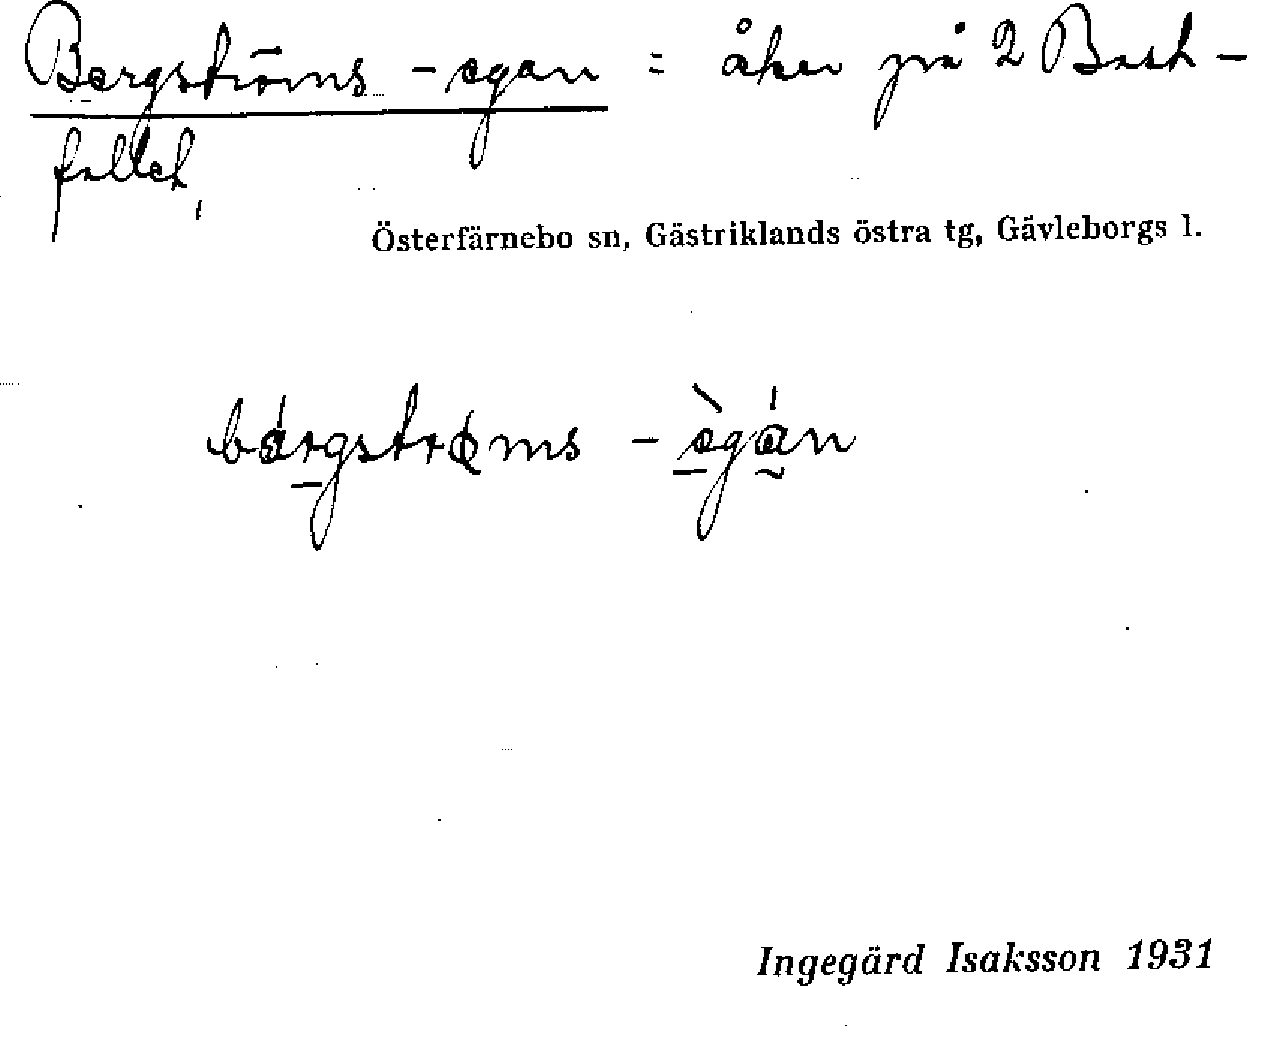 Bergströms - egan = åker på 2 Bask-
fallet,
Österfärnebo sn, Gästriklands östra tg, Gävleborgs l.
bárgstrøms - ègán
Ingegärd Isaksson 1931